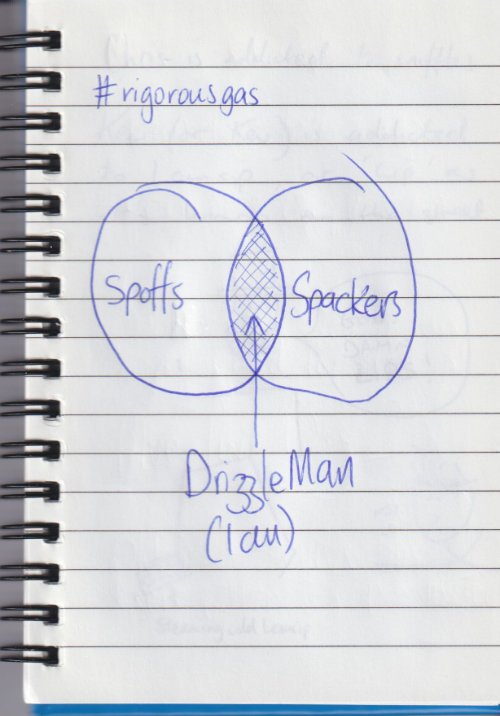 #rigorousgas
Spoffs
Spackers
DrizzleMan